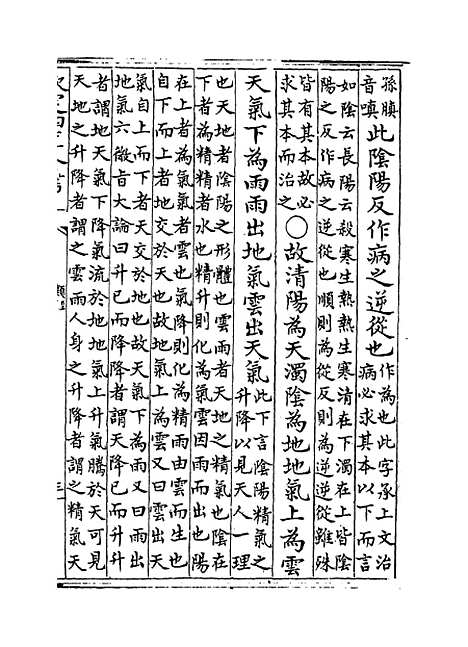 孫䐜
音嗔
此陰陽反作病之逆從也
作為也此字承上文治
病必求其本以下而言
如陰云長陽云殺寒生熱熱生寒清在下濁在上皆陰
陽之反作病之逆從也順則為從反則為逆逆從雖殊
皆有其本故必
求其本而治之
○故清陽為天濁陰為地地氣上為雲
天氣下為雨雨出地氣雲出天氣
此下言陰陽精氣之
升降以見天人一理
也天地者陰陽之形體也雲雨者天地之精氣也陰在
下者為精精者水也精升則化為氣雲因雨而出也陽
在上者為氣氣者雲也氣降則化為精雨由雲而生也
自下而上者地交於天也故地氣上為雲又曰雲出天
氣自上而下者天交於地也故天氣下為雨又曰雨出
地氣六微旨大論曰升已而降降者謂天降已而升升
者謂地天氣下降氣流於地地氣上升氣騰於天可見
天地之升降者謂之雲雨人身之升降者謂之精氣天